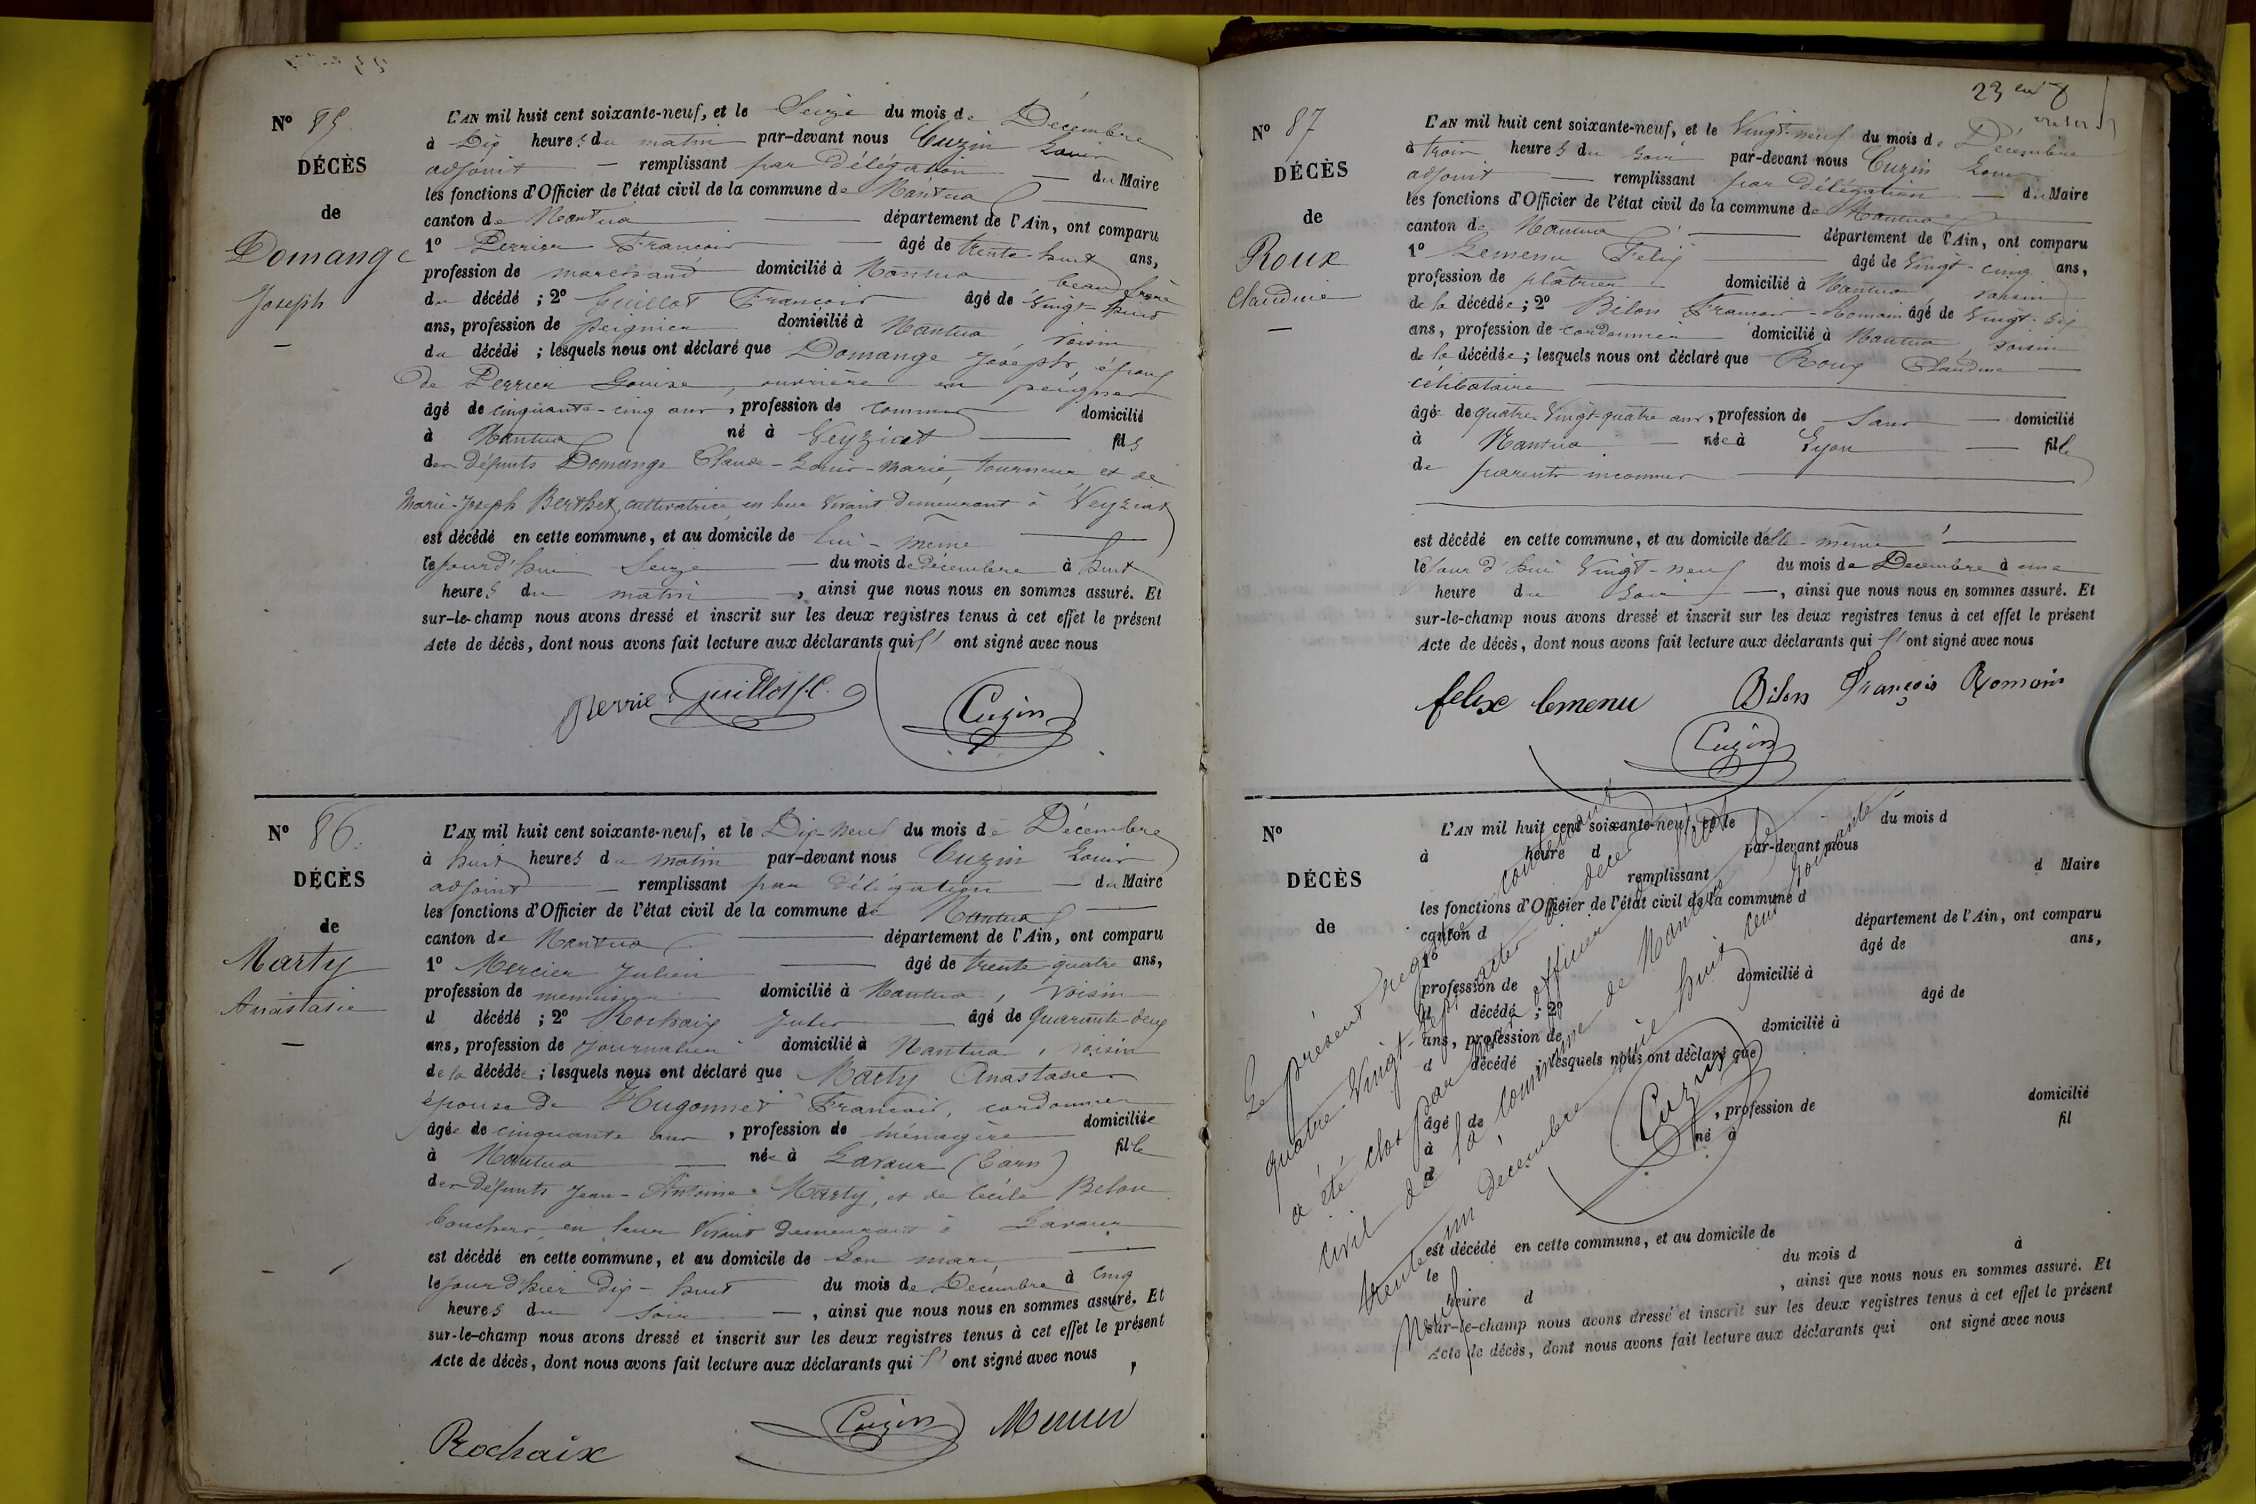 Nº 85.
DÉCÈS
de
Domange
Joseph
L'AN mil huit cent soixante-neuf, et le Seize du mois de Décembre
à Dix heures du matin par-devant nous Cuzin Louis
adjoint — remplissant par délégation — du Maire
les fonctions d'Officier de l'état civil de la commune de Nantua
canton de Nantua département de l'Ain, ont comparu
1º Perrier François âgé de trente-huit ans,
profession de marchand domicilié à Nantua beau frère
du décédé ; 2º Guillot François âgé de Vingt-huit
ans, profession de peignier domicilié à Nantua, voisin
du décédé ; lesquels nous ont déclaré que Domange Joseph, époux
de Perrier Louise, ouvrière en peignes
âgé de cinquante-cinq ans, profession de domicilié
à Nantua né à Veyziat fils
des défunts Domange Claude-Louis-Marie, tourneur, et de
Marie-Joseph Berthet, cultivatrice en leur vivant demeurant à Veyziat
est décédé en cette commune, et au domicile de lui-même
le jourd'hui Seize du mois de décembre à huit
heures du matin, ainsi que nous nous en sommes assuré. Et
sur-le-champ nous avons dressé et inscrit sur les deux registres tenus à cet effet le présent
Acte de décès, dont nous avons fait lecture aux déclarants qui ont signé avec nous
Perrie Guillot f.c. Cuzin
Nº 86.
DÉCÈS
de
Marty
Anastasie
L'AN mil huit cent soixante-neuf, et le Dix-neuf du mois de Décembre
à huit heures du matin par-devant nous Cuzin Louis
adjoint — remplissant par délégation — du Maire
les fonctions d'Officier de l'état civil de la commune de Nantua
canton de Nantua département de l'Ain, ont comparu
1º Mercier Julien âgé de trente-quatre ans,
profession de menuisier domicilié à Nantua, voisin
d décédé ; 2º Rochaix Jules âgé de quarante-deux
ans, profession de Journalier domicilié à Nantua, voisin
de la décédée ; lesquels nous ont déclaré que Marty Anastasie
épouse de Hugonnet François, cordonnier
âgée de cinquante ans, profession de ménagère domiciliée
à Nantua née à Lavaur (Tarn) fille
des défunts Jean-Antoine Marty, et de Cécile Belou
bouchers, en leur vivant demeurant à Lavaur
est décédé en cette commune, et au domicile de Son mari
le jour d'hier Dix-huit du mois de Décembre à Cinq
heures du Soir, ainsi que nous nous en sommes assuré. Et
sur-le-champ nous avons dressé et inscrit sur les deux registres tenus à cet effet le présent
Acte de décès, dont nous avons fait lecture aux déclarants qui ont signé avec nous
Rochaix Cuzin Mercier
Nº 87
DÉCÈS
de
Roux
Claudine
L'AN mil huit cent soixante-neuf, et le Vingt-neuf du mois de Décembre
à trois heures du Soir par-devant nous Cuzin Louis
adjoint — remplissant par délégation — du Maire
les fonctions d'Officier de l'état civil de la commune de Nantua
canton de Nantua département de l'Ain, ont comparu
1º Lemenu Félix âgé de Vingt-cinq ans,
profession de plâtrier domicilié à Nantua voisin
de la décédée ; 2º Bilon François-Romain âgé de Vingt-six
ans, profession de cordonnier domicilié à Nantua, voisin
de la décédée ; lesquels nous ont déclaré que Roux Claudine
célibataire
âgée de quatre-Vingt-quatre ans, profession de Sans domicilié
à Nantua née à Lyon fille
de parents inconnus
est décédé en cette commune, et au domicile d'elle-même
le jour d'hui Vingt-neuf du mois de Décembre à une
heure du Soir, ainsi que nous nous en sommes assuré. Et
sur-le-champ nous avons dressé et inscrit sur les deux registres tenus à cet effet le présent
Acte de décès, dont nous avons fait lecture aux déclarants qui ont signé avec nous
felix lemenu Bilon François Romain
Cuzin
Nº
DÉCÈS
de
L'AN mil huit cent soixante-neuf, et le du mois d
à heure d par-devant nous
remplissant d Maire
les fonctions d'Officier de l'état civil de la commune d
canton d département de l'Ain, ont comparu
1º âgé de ans,
profession de domicilié à
d décédé ; 2º âgé de
ans, profession de domicilié à
d décédé lesquels nous ont déclaré que
âgé de , profession de domicilié
à né à fil
d
est décédé en cette commune, et au domicile de
le du mois d à
heure d , ainsi que nous nous en sommes assuré. Et
sur-le-champ nous avons dressé et inscrit sur les deux registres tenus à cet effet le présent
Acte de décès, dont nous avons fait lecture aux déclarants qui ont signé avec nous
Le présent registre contenant
quatre-Vingt-sept actes de décès
a été clos par nous officier de l'état
civil de la commune de Nantua le
trente un décembre mil huit cent soixante
neuf
Cuzin